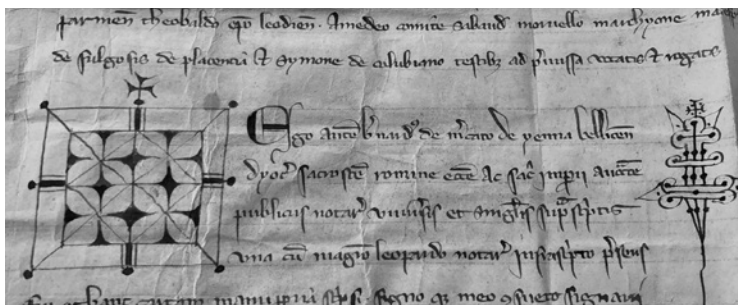 parmeñ theobaldo ep̃o leodieñ. Amedeo comite Sabaud moruello marchyone
de fulgosis de placencia et Symone de testibȝ ad p̃missa vocatis et rogatis
Ego b̃nard⁹ de m̃cato de penna
dyoc̃ sacroscẽ romane ecc̃e Ac sac̃ imp̃ii auct̃te
publicus notar̃ vniũsis et singl̃is sup̃sc̃ptis
vna cũ magr̃o leopardo notar̃ infrasc̃pto p̃sens
hanc cartam manu p̃p̃a sc̃psi. signo q̃ meo 9sueto signaui